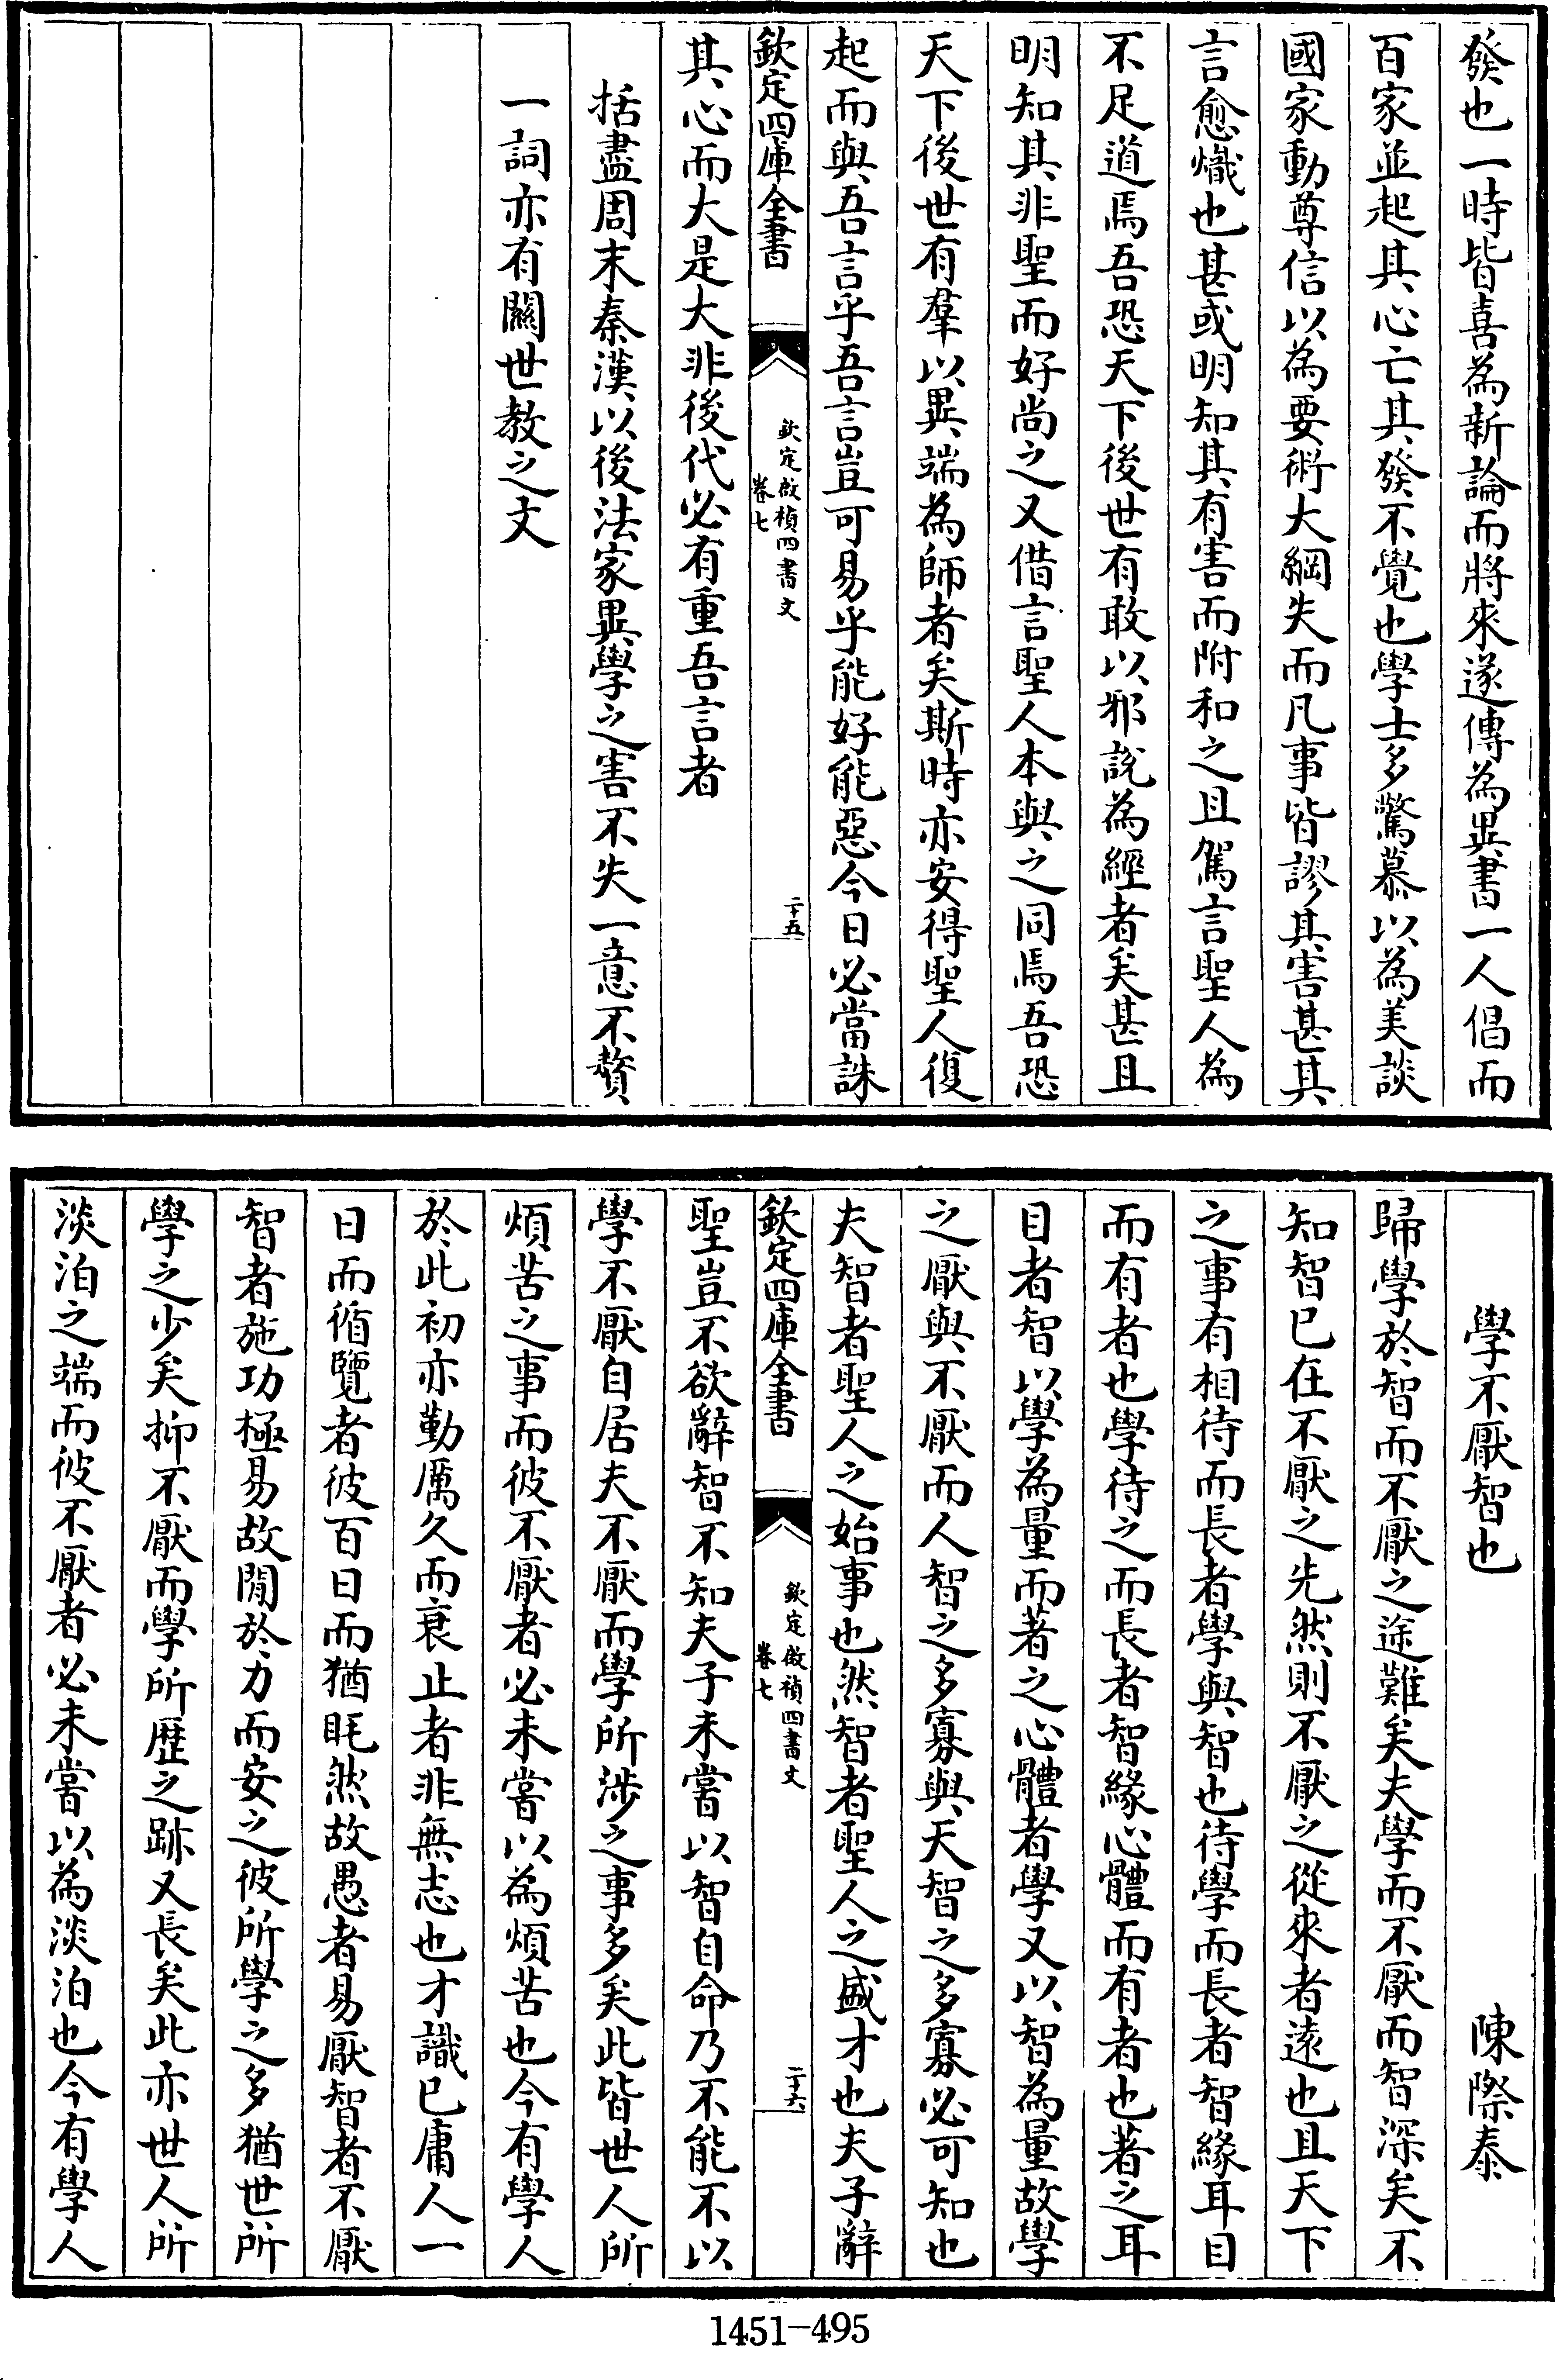 發也一時皆喜為新論而將來遂傳為異書一人倡而
百家並起其心亡其發不覺也學士多驚慕以為美談
國家動尊信以為要術大綱失而凡事皆謬其害甚其
言愈熾也甚或明知其有害而附和之且駕言聖人為
不足道焉吾恐天下後世有敢以邪說為經者矣甚且
明知其非聖而好尚之又借言聖人本與之同焉吾恐
天下後世有羣以異端為師者矣斯時亦安得聖人復
起而與吾言乎吾言豈可易乎能好能惡今日必當誅
欽定四庫全書
欽定啟禎四書文
卷七
二十五
其心而大是大非後代必有重吾言者
括盡周末秦漢以後法家異學之害不失一意不贅
一詞亦有關世教之文
學不厭智也
陳際泰
歸學於智而不厭之途難矣夫學而不厭而智深矣不
知智已在不厭之先然則不厭之從來者遠也且天下
之事有相待而長者學與智也待學而長者智緣耳目
而有者也學待之而長者智緣心體而有者也著之耳
目者智以學為量而著之心體者學又以智為量故學
之厭與不厭而人智之多寡與天智之多寡必可知也
夫智者聖人之始事也然智者聖人之盛才也夫子辭
欽定四庫全書
欽定啟禎四書文
卷七
二十六
聖豈不欲辭智不知夫子未嘗以智自命乃不能不以
學不厭自居夫不厭而學所涉之事多矣此皆世人所
煩苦之事而彼不厭者必未嘗以為煩苦也今有學人
於此初亦勤厲久而衰止者非無志也才識已庸人一
日而循覽者彼百日而猶眊然故愚者易厭智者不厭
智者施功極易故閒於力而安之彼所學之多猶世所
學之少矣抑不厭而學所歷之跡又長矣此亦世人所
淡泊之端而彼不厭者必未嘗以為淡泊也今有學人
1451-495